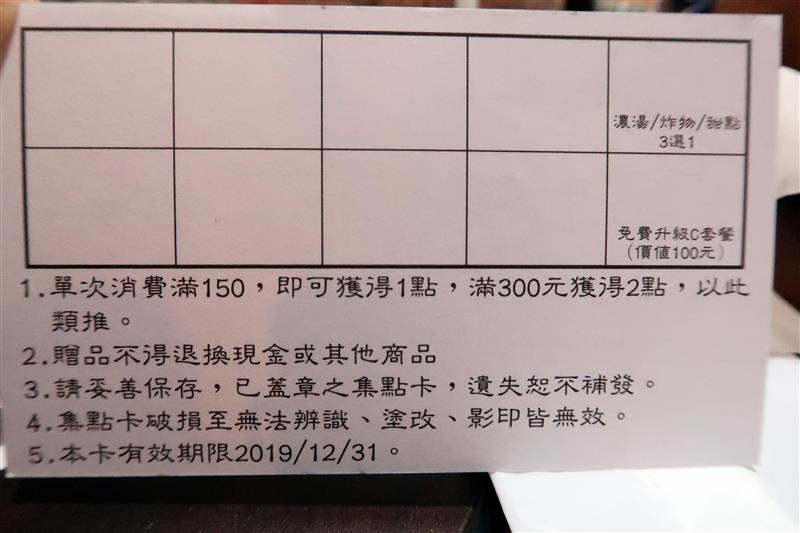 濃湯/炸物/甜點
3選1
免費升級C套餐
(價值100元)
1.單次消費滿150，即可獲得1點，滿300元獲得2點，以此
類推。
2.贈品不得退換現金或其他商品
3.請妥善保存，已蓋章之集點卡，遺失恕不補發。
4.集點卡破損至無法辨識、塗改、影印皆無效。
5.本卡有效期限2019/12/31。